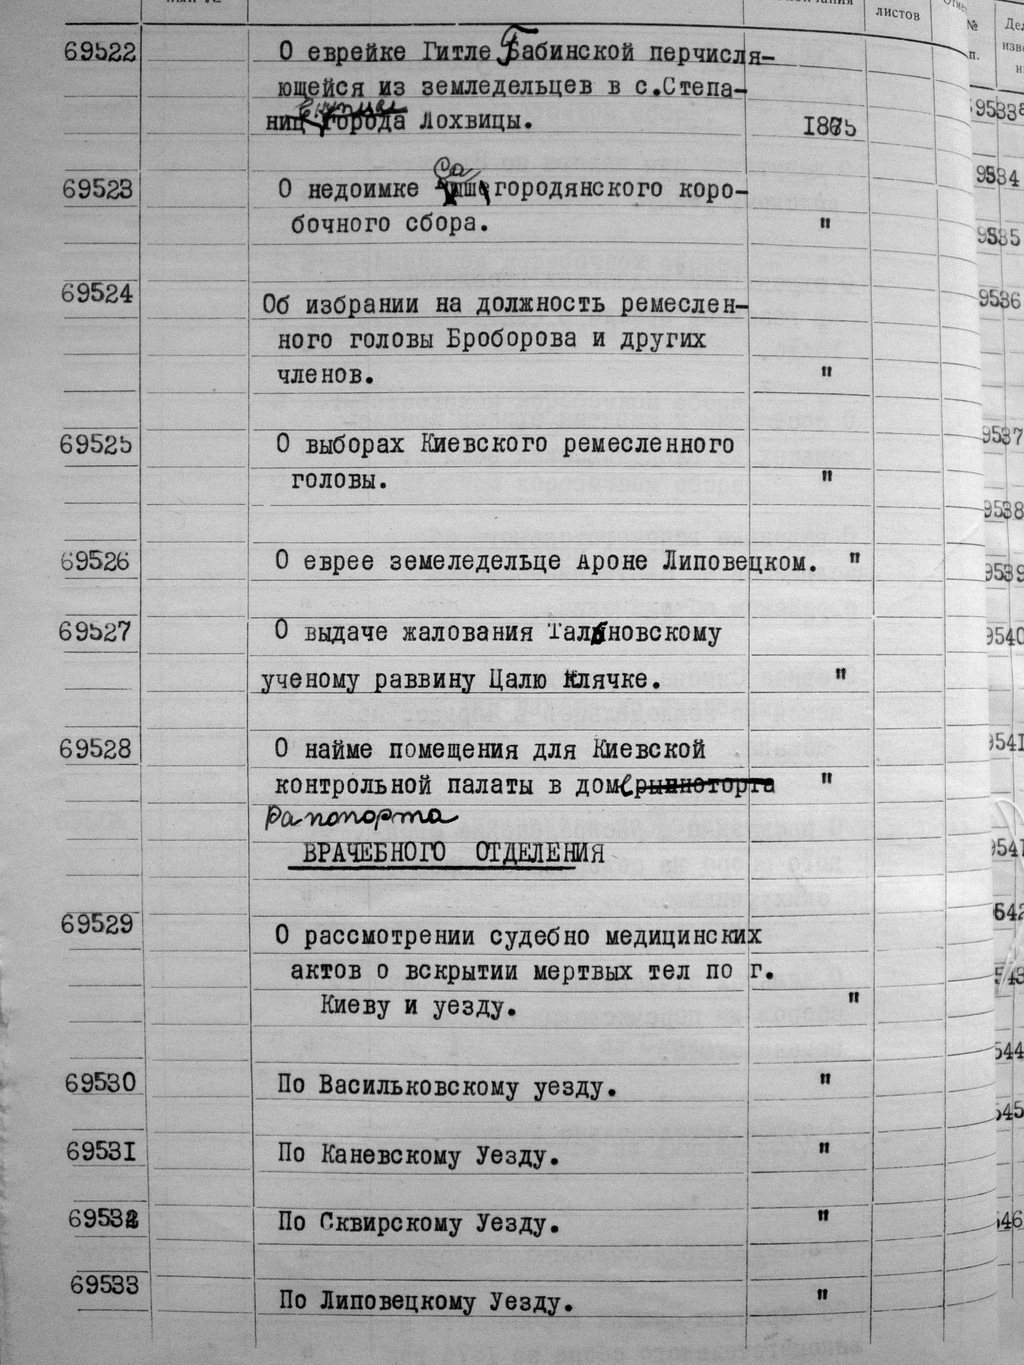 листов
№
69522 О еврейке Гитле Бабинской перчисля-
ющейся из земледельцев в с.Степа-
ниц города Лохвицы. 1875
69523 О недоимке Са городянского коро-
бочного сбора. "
69524 Об избрании на должность ремеслен-
ного головы Броборова и других
членов. "
69525 О выборах Киевского ремесленного
головы. "
69526 О еврее земеледельце Ароне Липовецком. "
69527 О выдаче жалования Тальновскому
ученому раввину Цалю Клячке. "
69528 О найме помещения для Киевской
контрольной палаты в дом "
Рапопорта
ВРАЧЕБНОГО ОТДЕЛЕНИЯ
69529 О рассмотрении судебно медицинских
актов о вскрытии мертвых тел по г.
Киеву и уезду. "
69530 По Васильковскому уезду. "
69531 По Каневскому Уезду. "
69532 По Сквирскому Уезду. "
69533 По Липовецкому Уезду. "